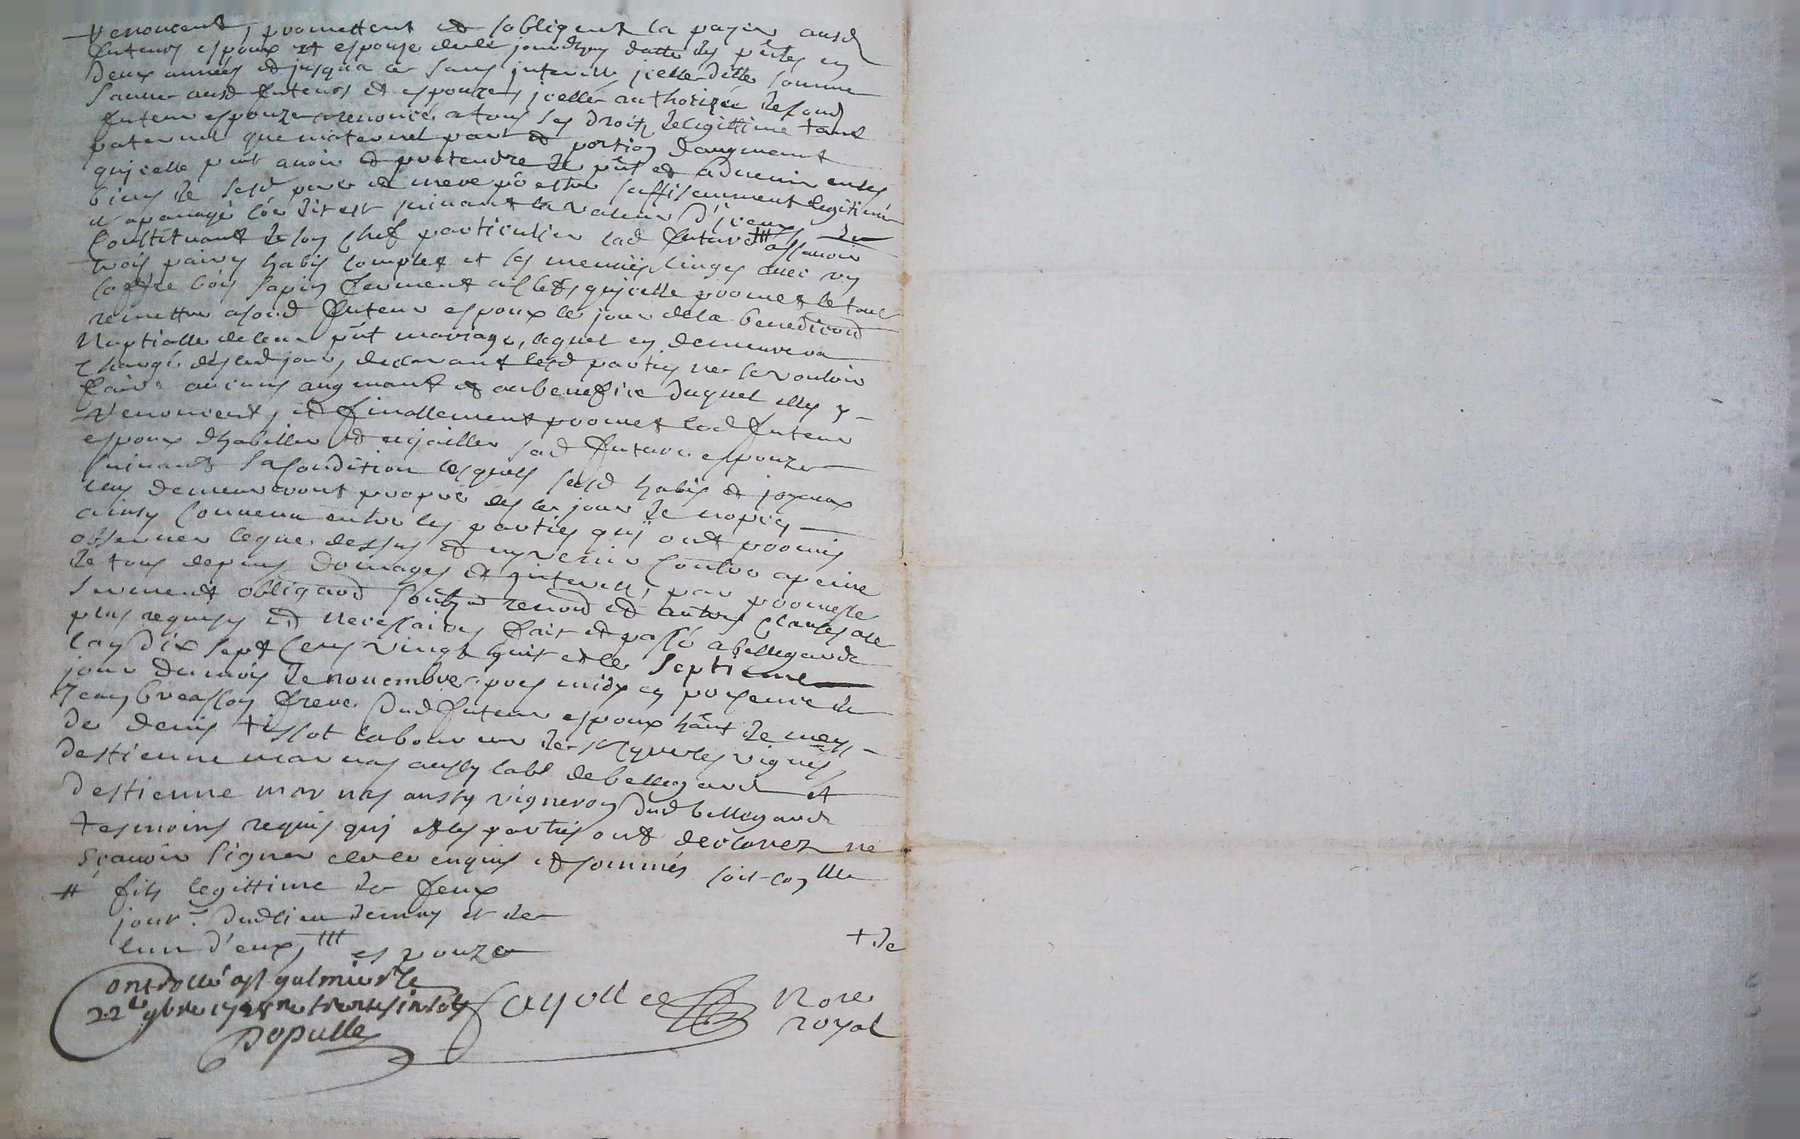 renoncent, promettent et sobligent la payer ausd
futeurs espoux et espouze dela jourdhuy datte des pntes en
deux années et jusqua ce sans interestz jcelle ditte somme
sauver ausd futeurs et espouzes, jcelle authorizée de sond
futeur espouze renoncé a tous ses droitz de legittime tant
paternel que maternel part et portion daugment
qujcelle peut avoir et pretendre de pnt et advenir en les
biens de sesd pere et mere pr estre suffisemment legitimée
et apanagée co'e dit est suivant la valeur d'jceux, se
Constituant de son chef particulier lad future ttt assavoir
trois paires habis complet et ses menues linges avec un
coffre bois sapin fermant a clef, qujcelle promet le tout
remettre asond futeur espoux le jour dela benediction
Nuptialle de leur pnt mariage, lequel en demeurera
Chargé des led jour, declarant lesd parties ne se vouloir
faire aucuns augmant et au benefice duquel elles y
renoncent, et finallement promet led futeur
espoux dhabiller et enjoailler sad future espouze
suivant sa condition lesquels sesd habis et joyaux
luy demeureront propre des le jour de nopces
ainsy Convenu entre les parties quj ont promis
observer ceque dessus et ny venir Contre apeine
de tous depens domages et interest, par promesse
serment obligaon soubz on renoon et autres clauses ace
plus requises et necessaires fait et passé abellegarde
lan dix sept Cens vingt huit et le septieme
jour du mois de novembre apres midy en presence de
Jean breasson frere dud futeur espoux hant de mey
de denis tissot laboureur de st Cyre les vignes
destienne marnas aussy labr de bellegarde et
destienne marnas aussy vigneron dud bellegarde
tesmoins requis quj et les parties ont declarez ne
scavoir signer de ce enquis et sommés soit con lle
# fils legittime de feux
jour. dudlieu demey et de
lun d'eux, ttt espouze
+ de
Controllé a st galmier le
22e 9bre 1728 re trente six sols
Populle
fayolle Nore
royal